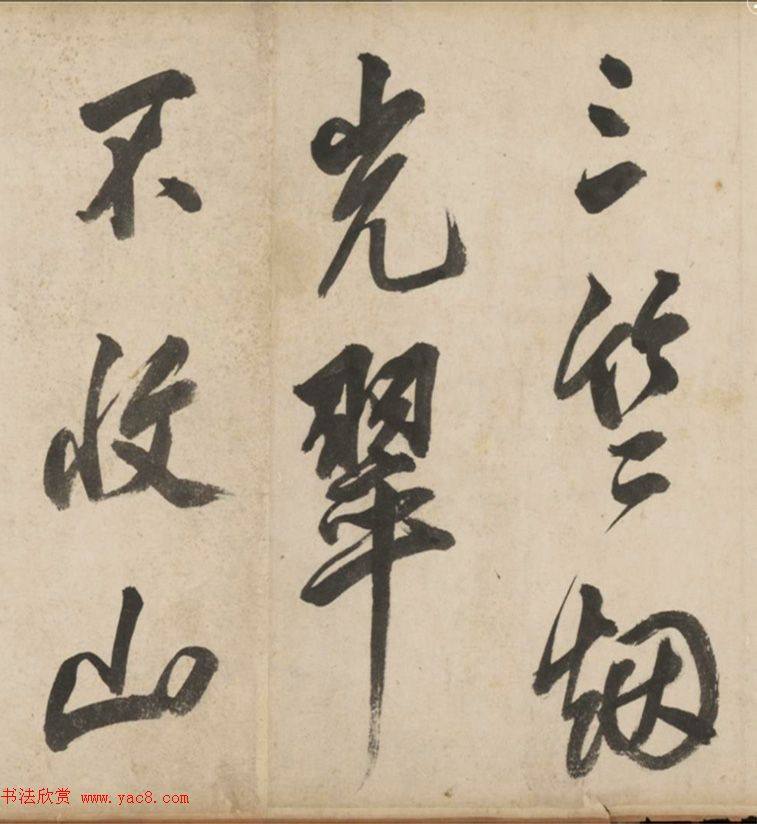 三竺烟
光翠
不收山
书法欣赏 www.yac8.com